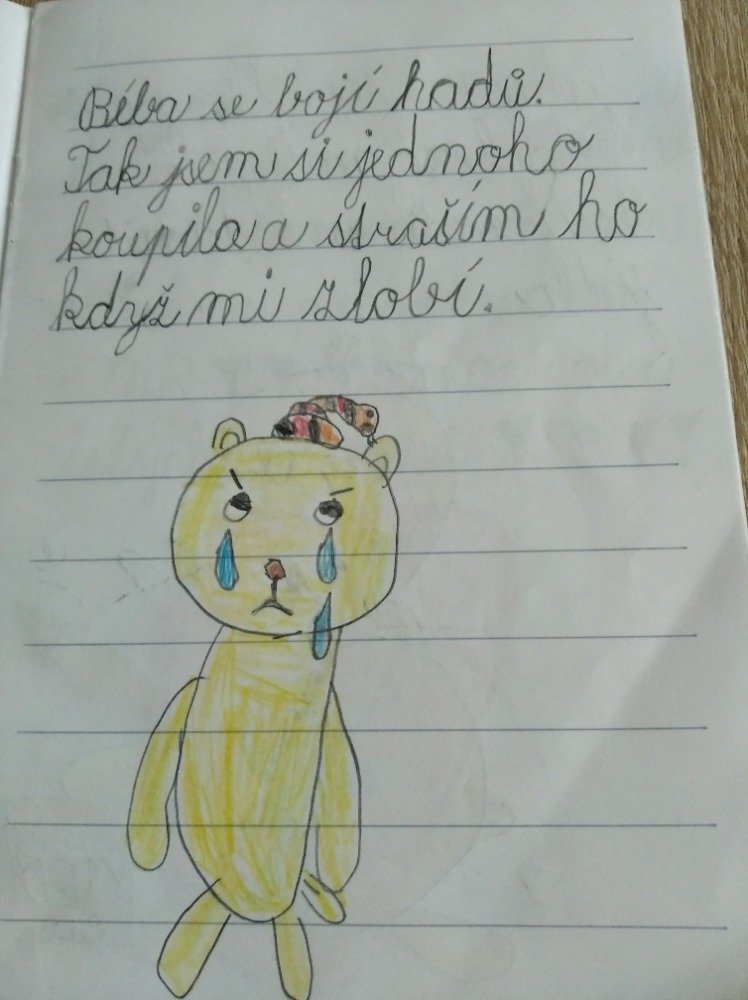 Béba se bojí hadů.
Tak jsem si jednoho
koupila a straším ho
když mi zlobí.